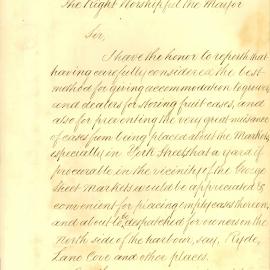 The Right Worshipful the Mayor
Sir,
I have the honor to report that
having carefully considered the best
method for giving accommodation to growers
and dealers for storing fruit cases, and
also for preventing the very great nuisance
of cases from being placed about the Markets,
especially in York Street that a yard if
procurable in the vicinity of the George
Street Markets would be appreciated &
convenient for placing empty cases therein,
and about to be despatched for owners on the
North side of the harbour, say, Ryde,
Lane Cove and other places.